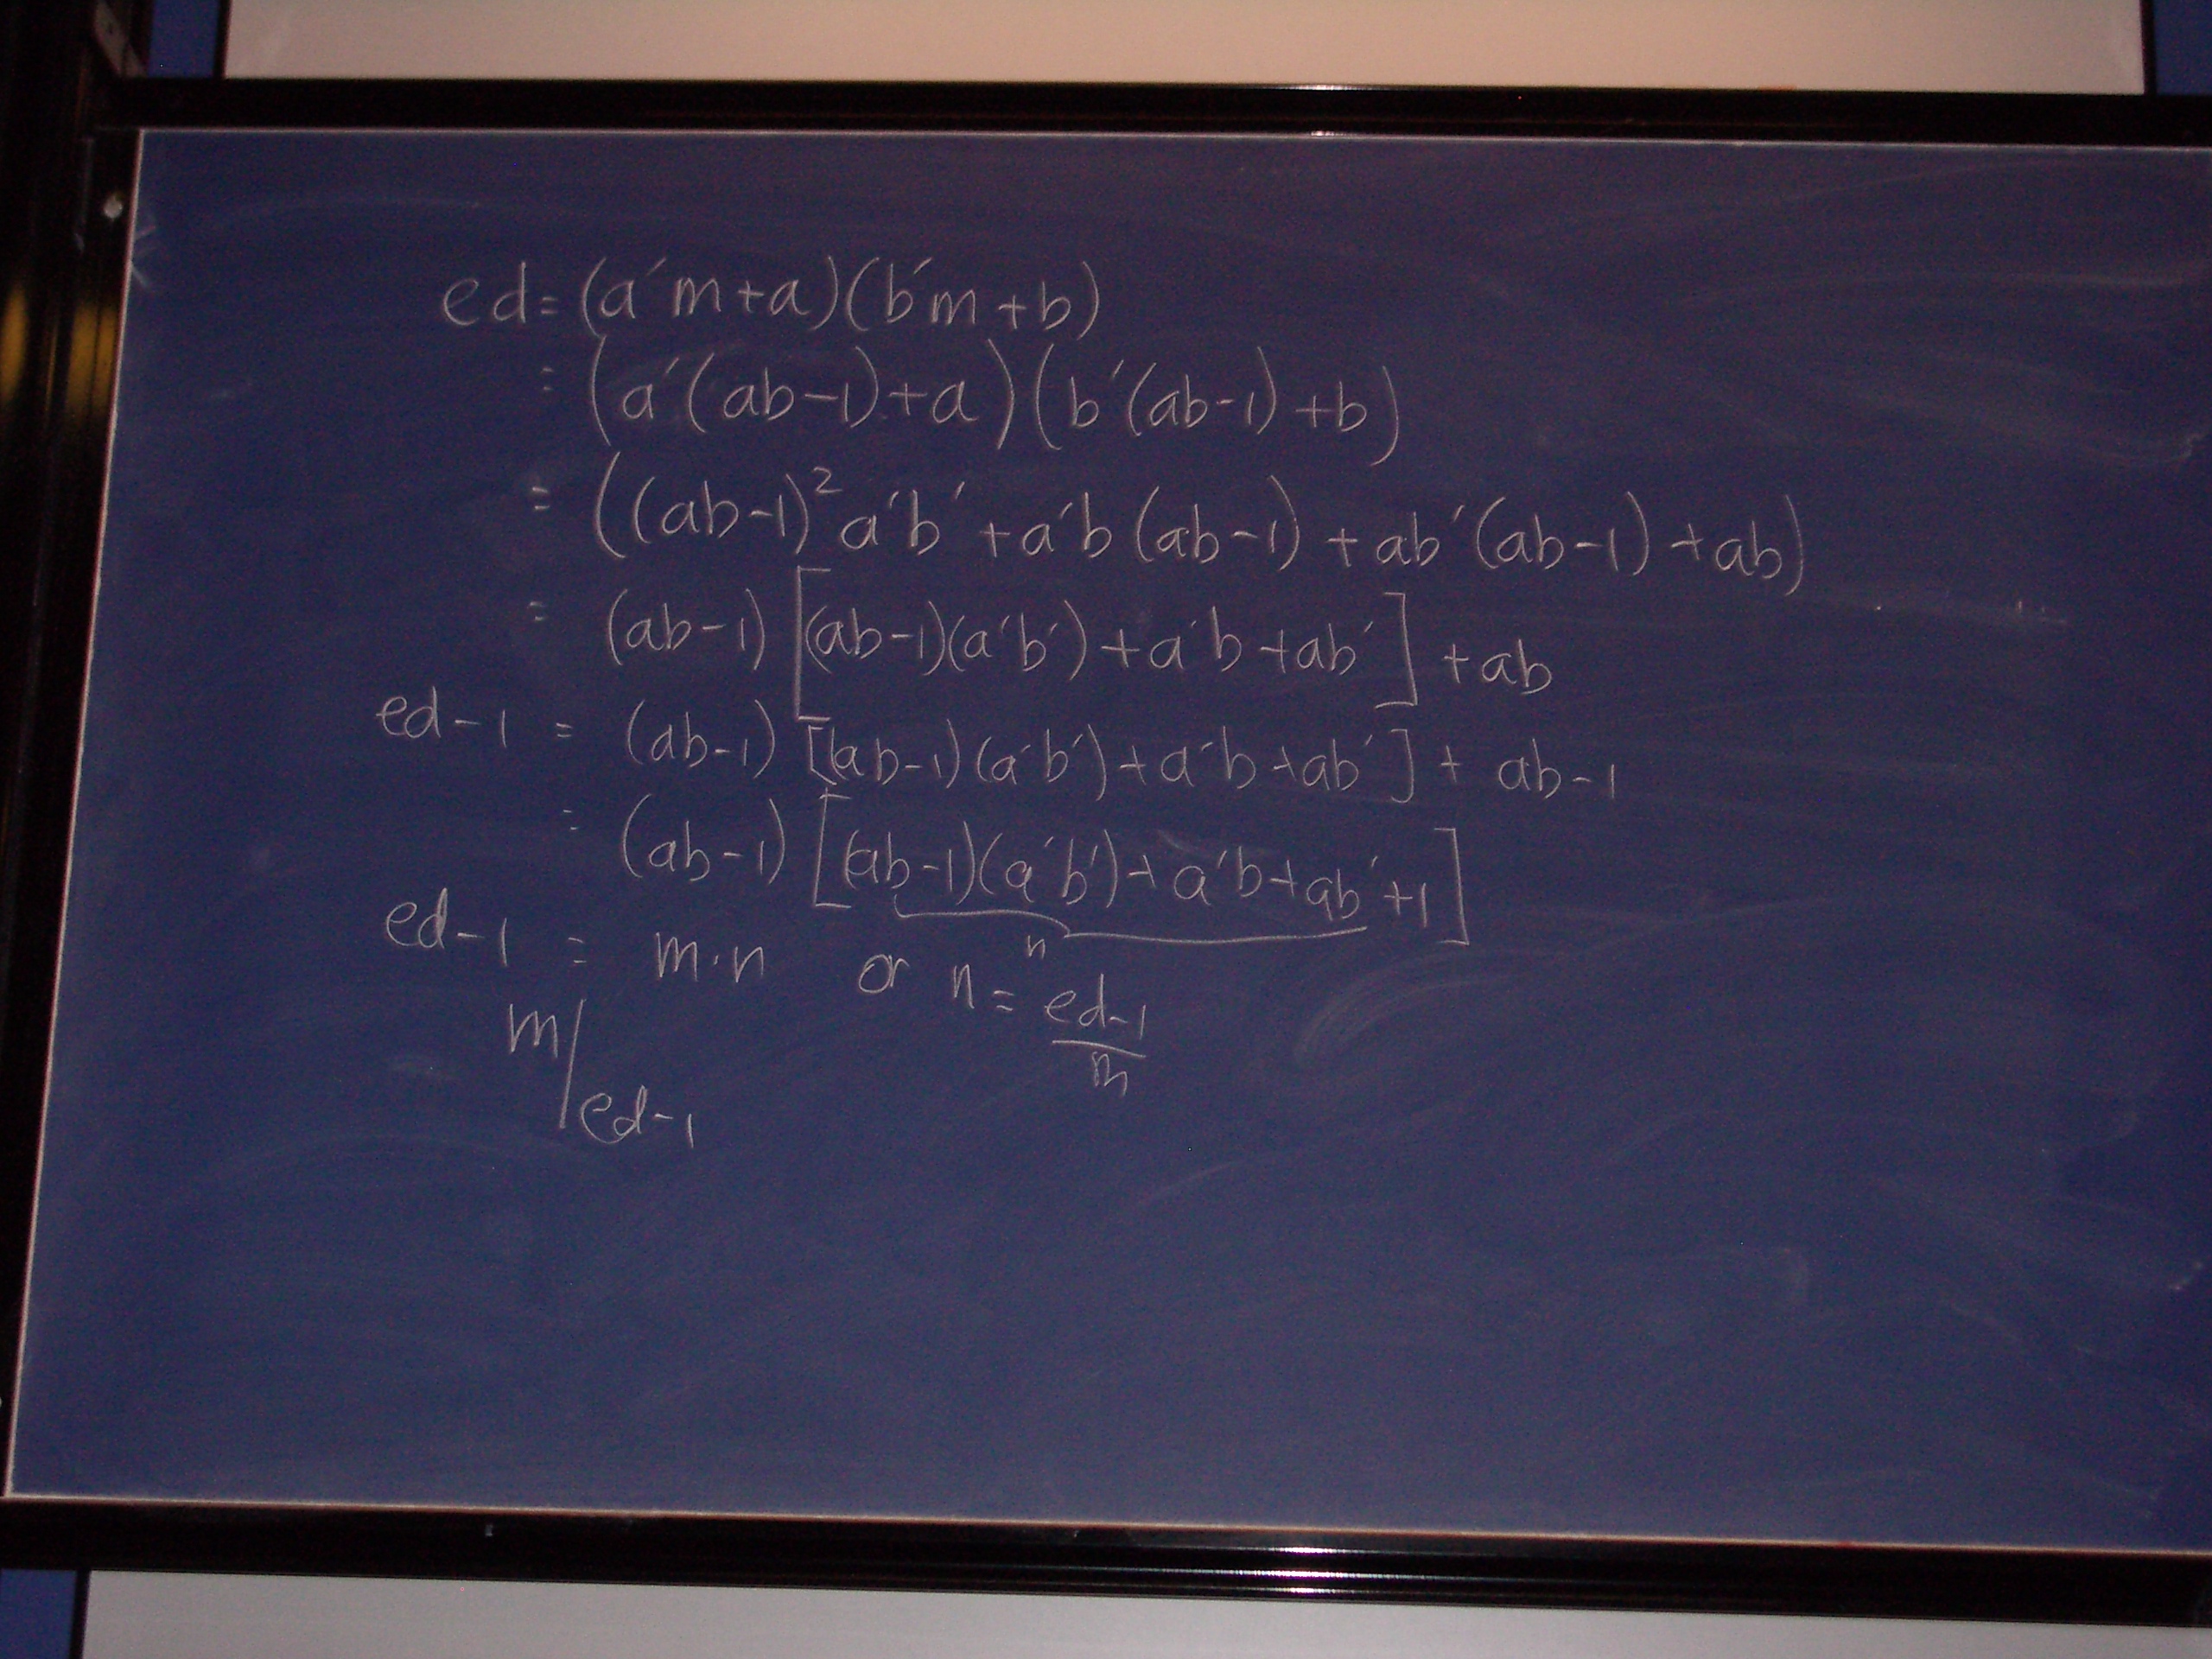 ed=(a′m+a)(b′m+b)
=(a′(ab-1)+a)(b′(ab-1)+b)
=((ab-1)²a′b′+a′b(ab-1)+ab′(ab-1)+ab)
=(ab-1)[(ab-1)(a′b′)+a′b+ab′]+ab
ed-1=(ab-1)[(ab-1)(a′b′)+a′b+ab′]+ab-1
=(ab-1)[(ab-1)(a′b′)+a′b+ab′+1]
n
ed-1=m·n or n=ed-1/m
m/ed-1